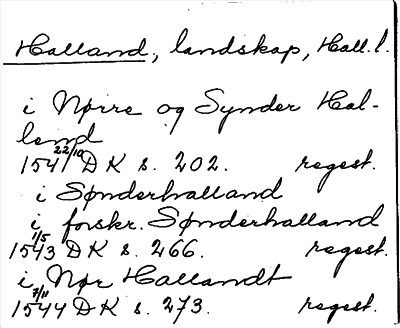 Halland, landskap, Hall. l.
i Nørre og Synder Hal-
lend
1541 22/10 DK s. 202. regest.
i Sønderhalland
i forskr. Sønderhalland
1543 1/5 DK s. 266. regest.
i Nør Hallandt
1544 7/11 DK s. 273. regest.